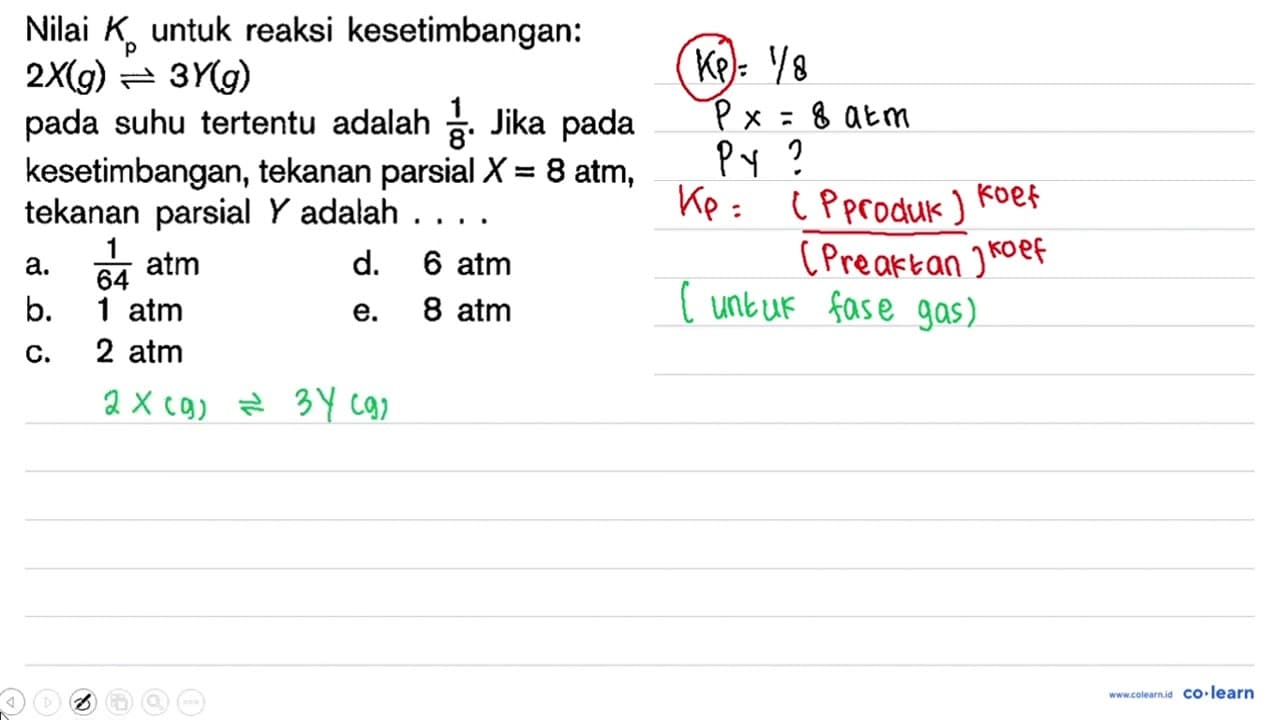 Nilai Kp untuk reaksi kesetimbangan:
2X(g) ⇌ 3Y(g)
pada suhu tertentu adalah 1/8. Jika pada
kesetimbangan, tekanan parsial X = 8 atm,
tekanan parsial Y adalah . . . .
a. 1/64 atm
b. 1 atm
c. 2 atm
d. 6 atm
e. 8 atm
Kp = 1/8
P X = 8 atm
P Y ?
Kp = (P produk)^koef / (P reaktan)^koef
(untuk fase gas)
2 X (g) ⇌ 3 Y (g)
www.colearn.id co·learn